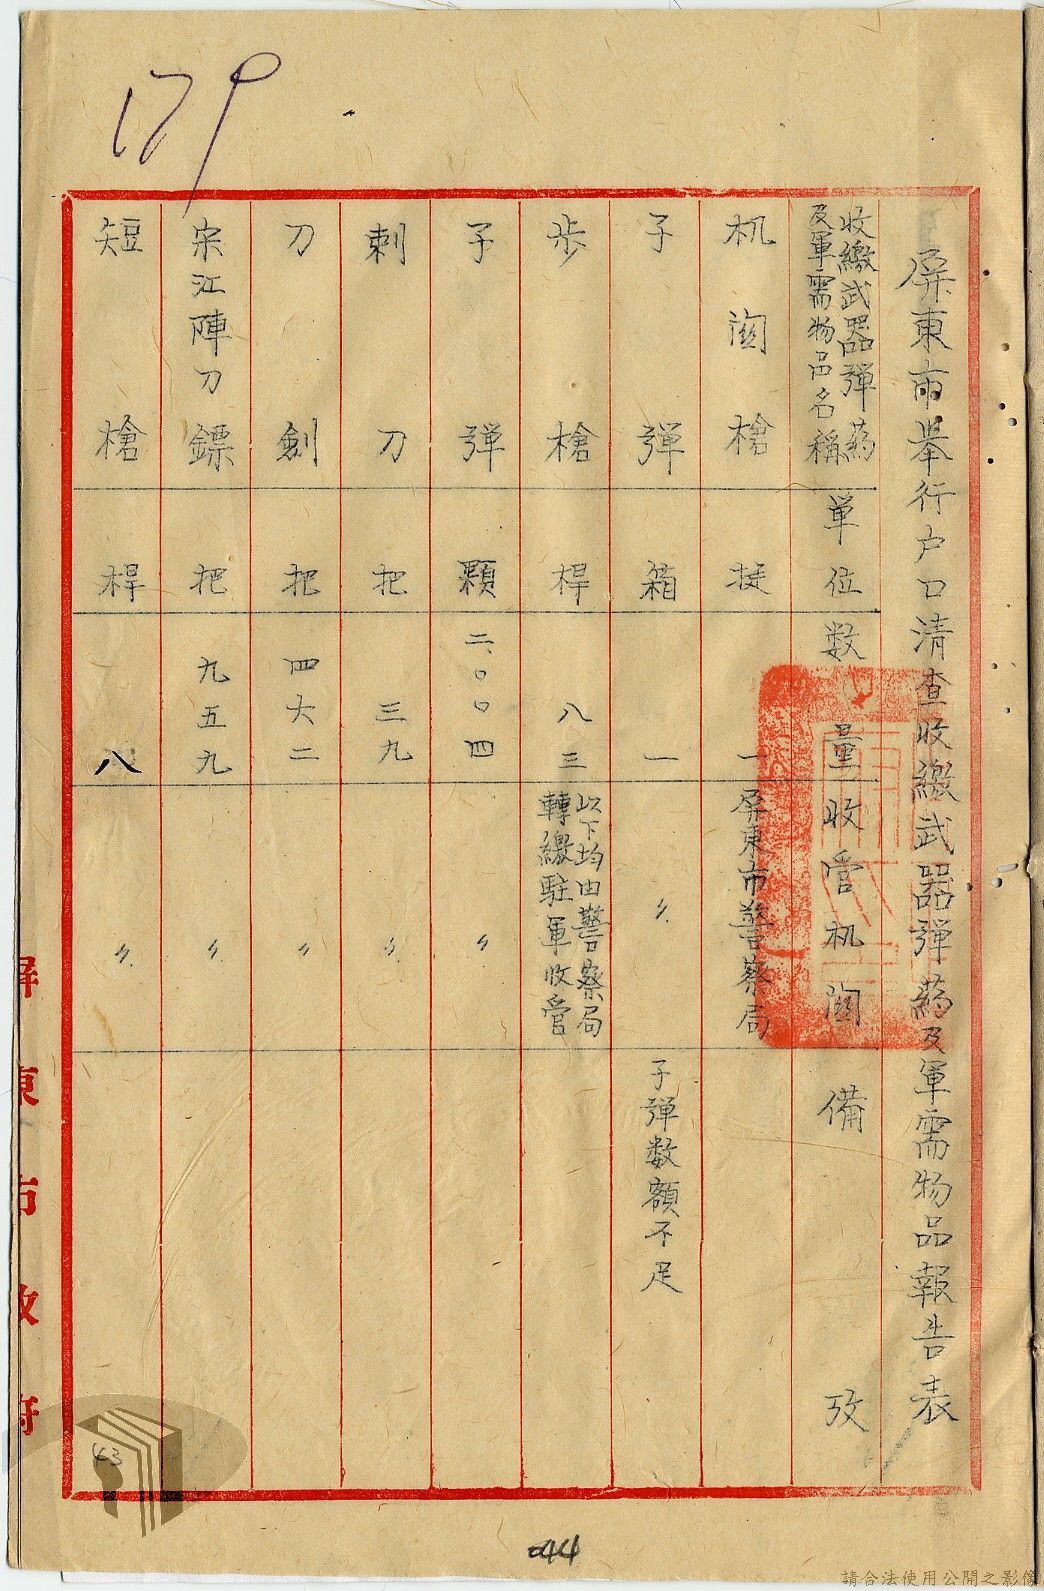 179
屏東市舉行户口清查收繳武器彈藥及軍需物品報告表
收繳武器彈藥
及軍需物品名稱
單位
数量
收管机関
備攷
机関槍
挺
一
屏東市警察局
子彈
箱
一
〃
子彈数額不足
歩槍
桿
八三
以下均由警察局
轉繳駐軍收管
子彈
顆
二、〇〇四
〃
刺刀
把
三九
〃
刀劍
把
四六二
〃
宋江陣刀鏢
把
九五九
〃
短槍
桿
八
〃
屏東市政府
43
44
請合法使用公開之影像